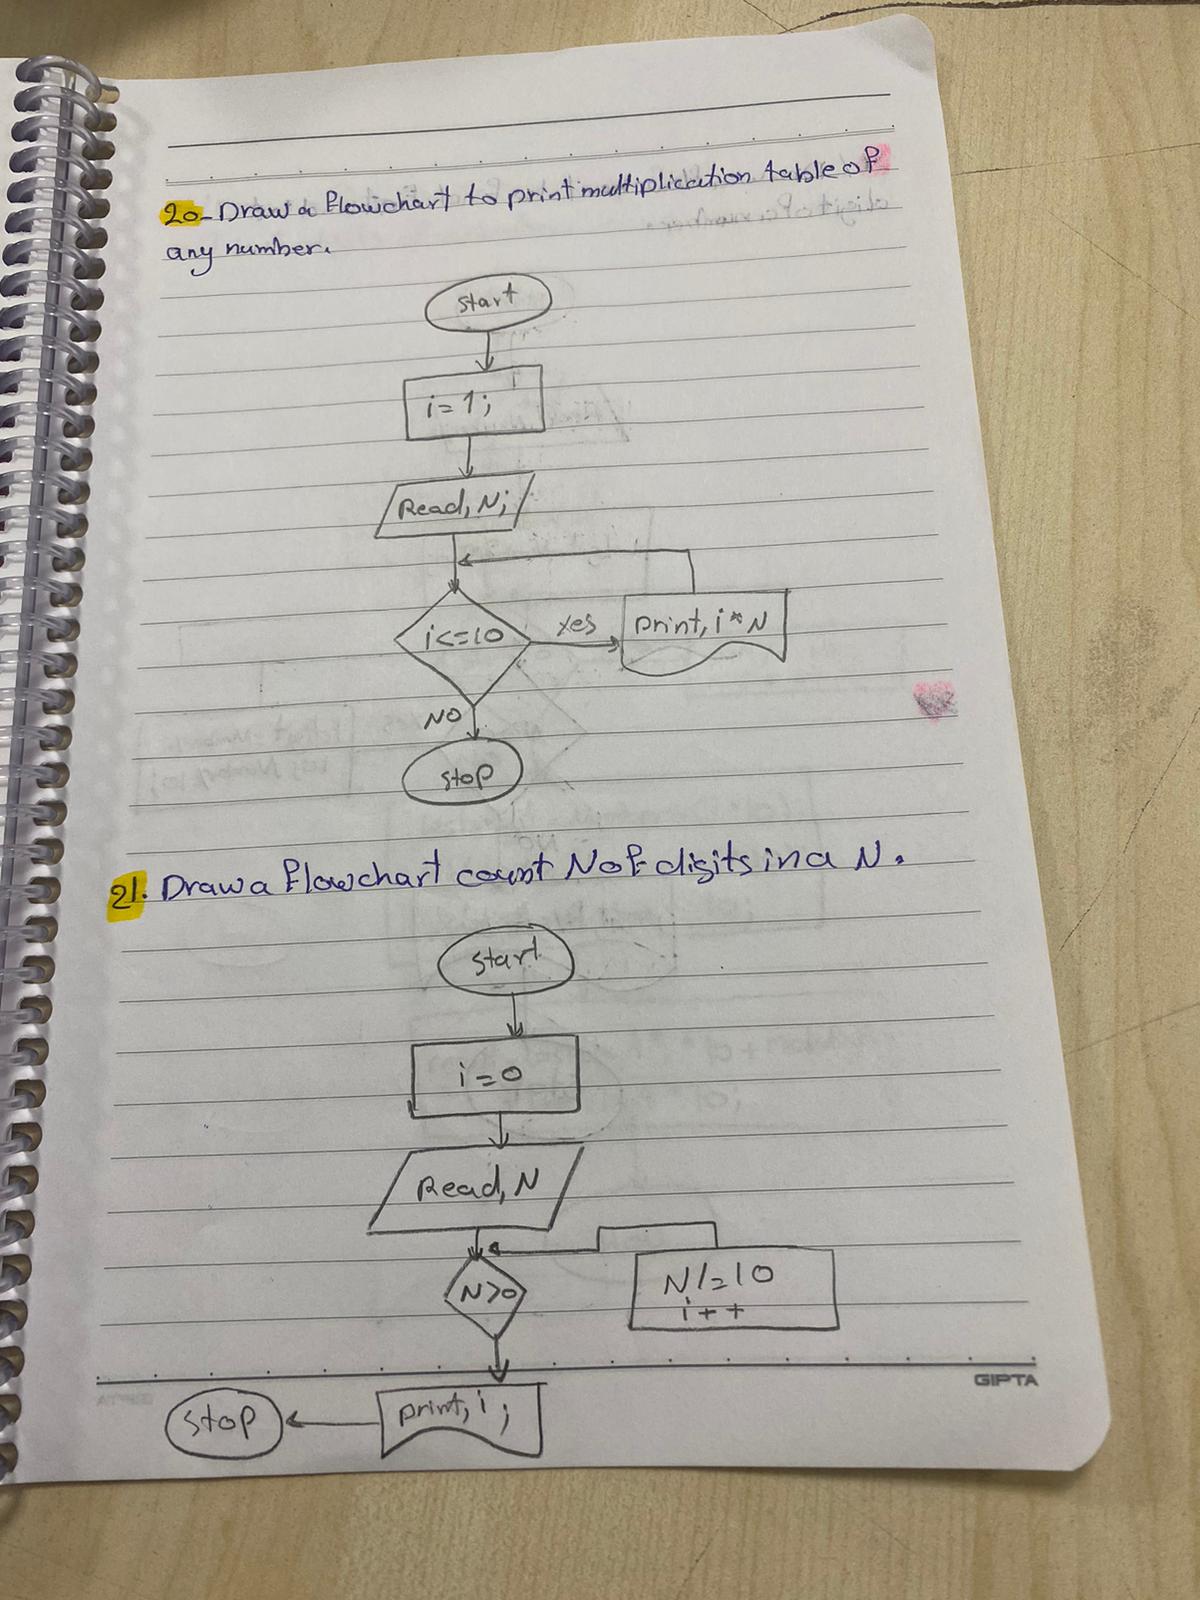 20- Draw a flowchart to print multiplication table of
any number.
start
i=1;
Read, N;
i<=10
Yes
print, i*N
NO
stop
21. Draw a flowchart count N of digits in a N.
start
i=0
Read, N
N>0
N/=10
i++
GIPTA
print, i;
stop